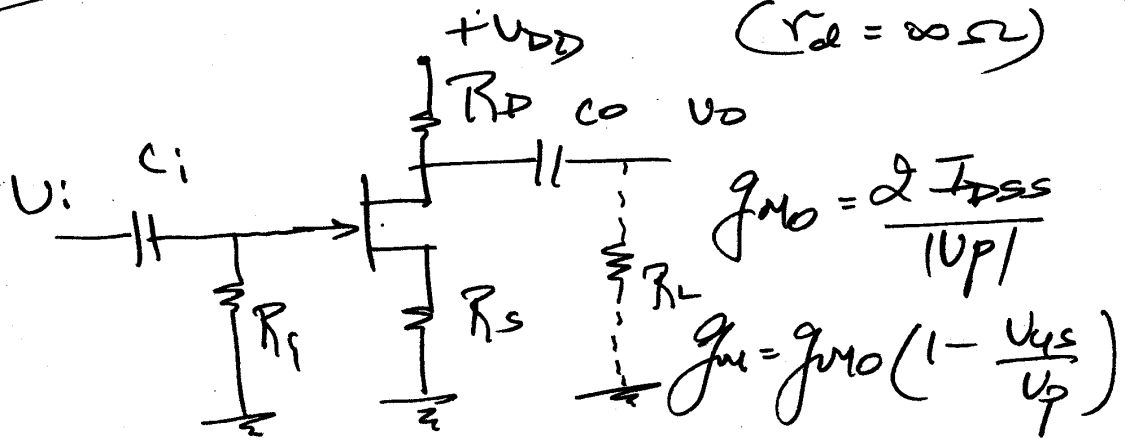 +VDD
(rd = ∞ Ω)
RD
Co
Vo
Ci
Vi
gmo = 2 IDSS / |VP|
RG
RS
RL
gm = gmo (1 - VGS / VP)